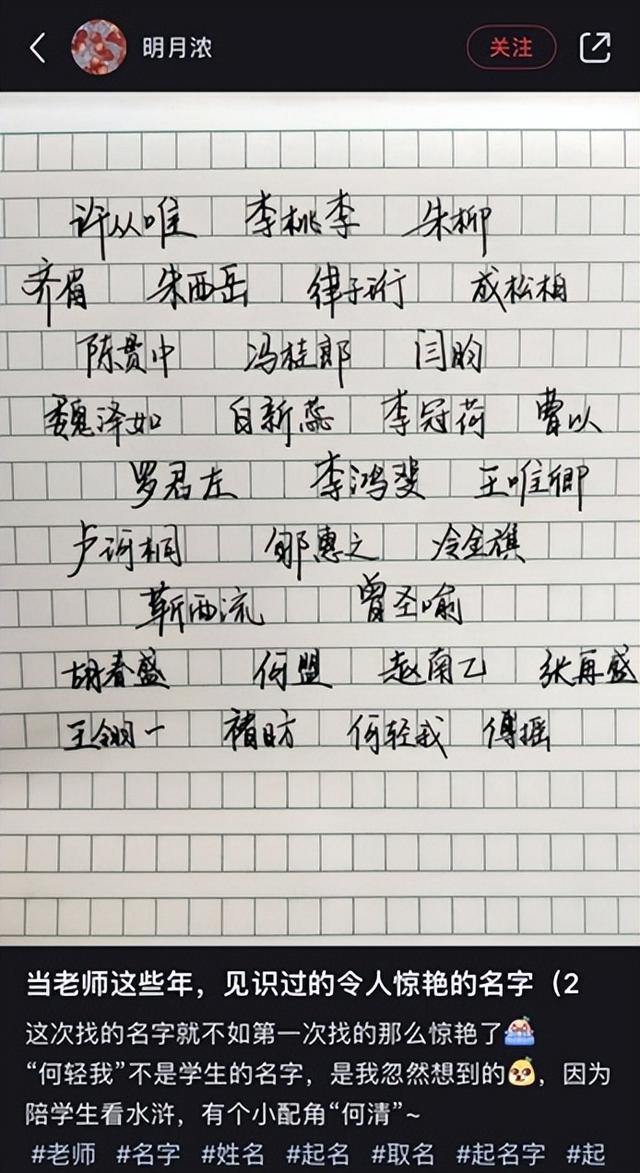 明月浓 关注
许从唯 李桃李 朱柳
齐眉 朱西岳 律子珩 成松柏
陈贯中 冯桂郎 闫昀
魏泽如 白新蕊 李冠荷 曹以
罗君左 李鸿斐 王唯卿
卢诃桐 邹惠之 冷金旗
靳西流 曾圣喻
胡春盛 何盟 赵南乙 张再盛
王翎一 褚昉 何轻我 傅摇
当老师这些年，见识过的令人惊艳的名字（2
这次找的名字就不如第一次找的那么惊艳了
“何轻我”不是学生的名字，是我忽然想到的，因为
陪学生看水浒，有个小配角“何清”~
#老师 #名字 #姓名 #起名 #取名 #起名字 #起